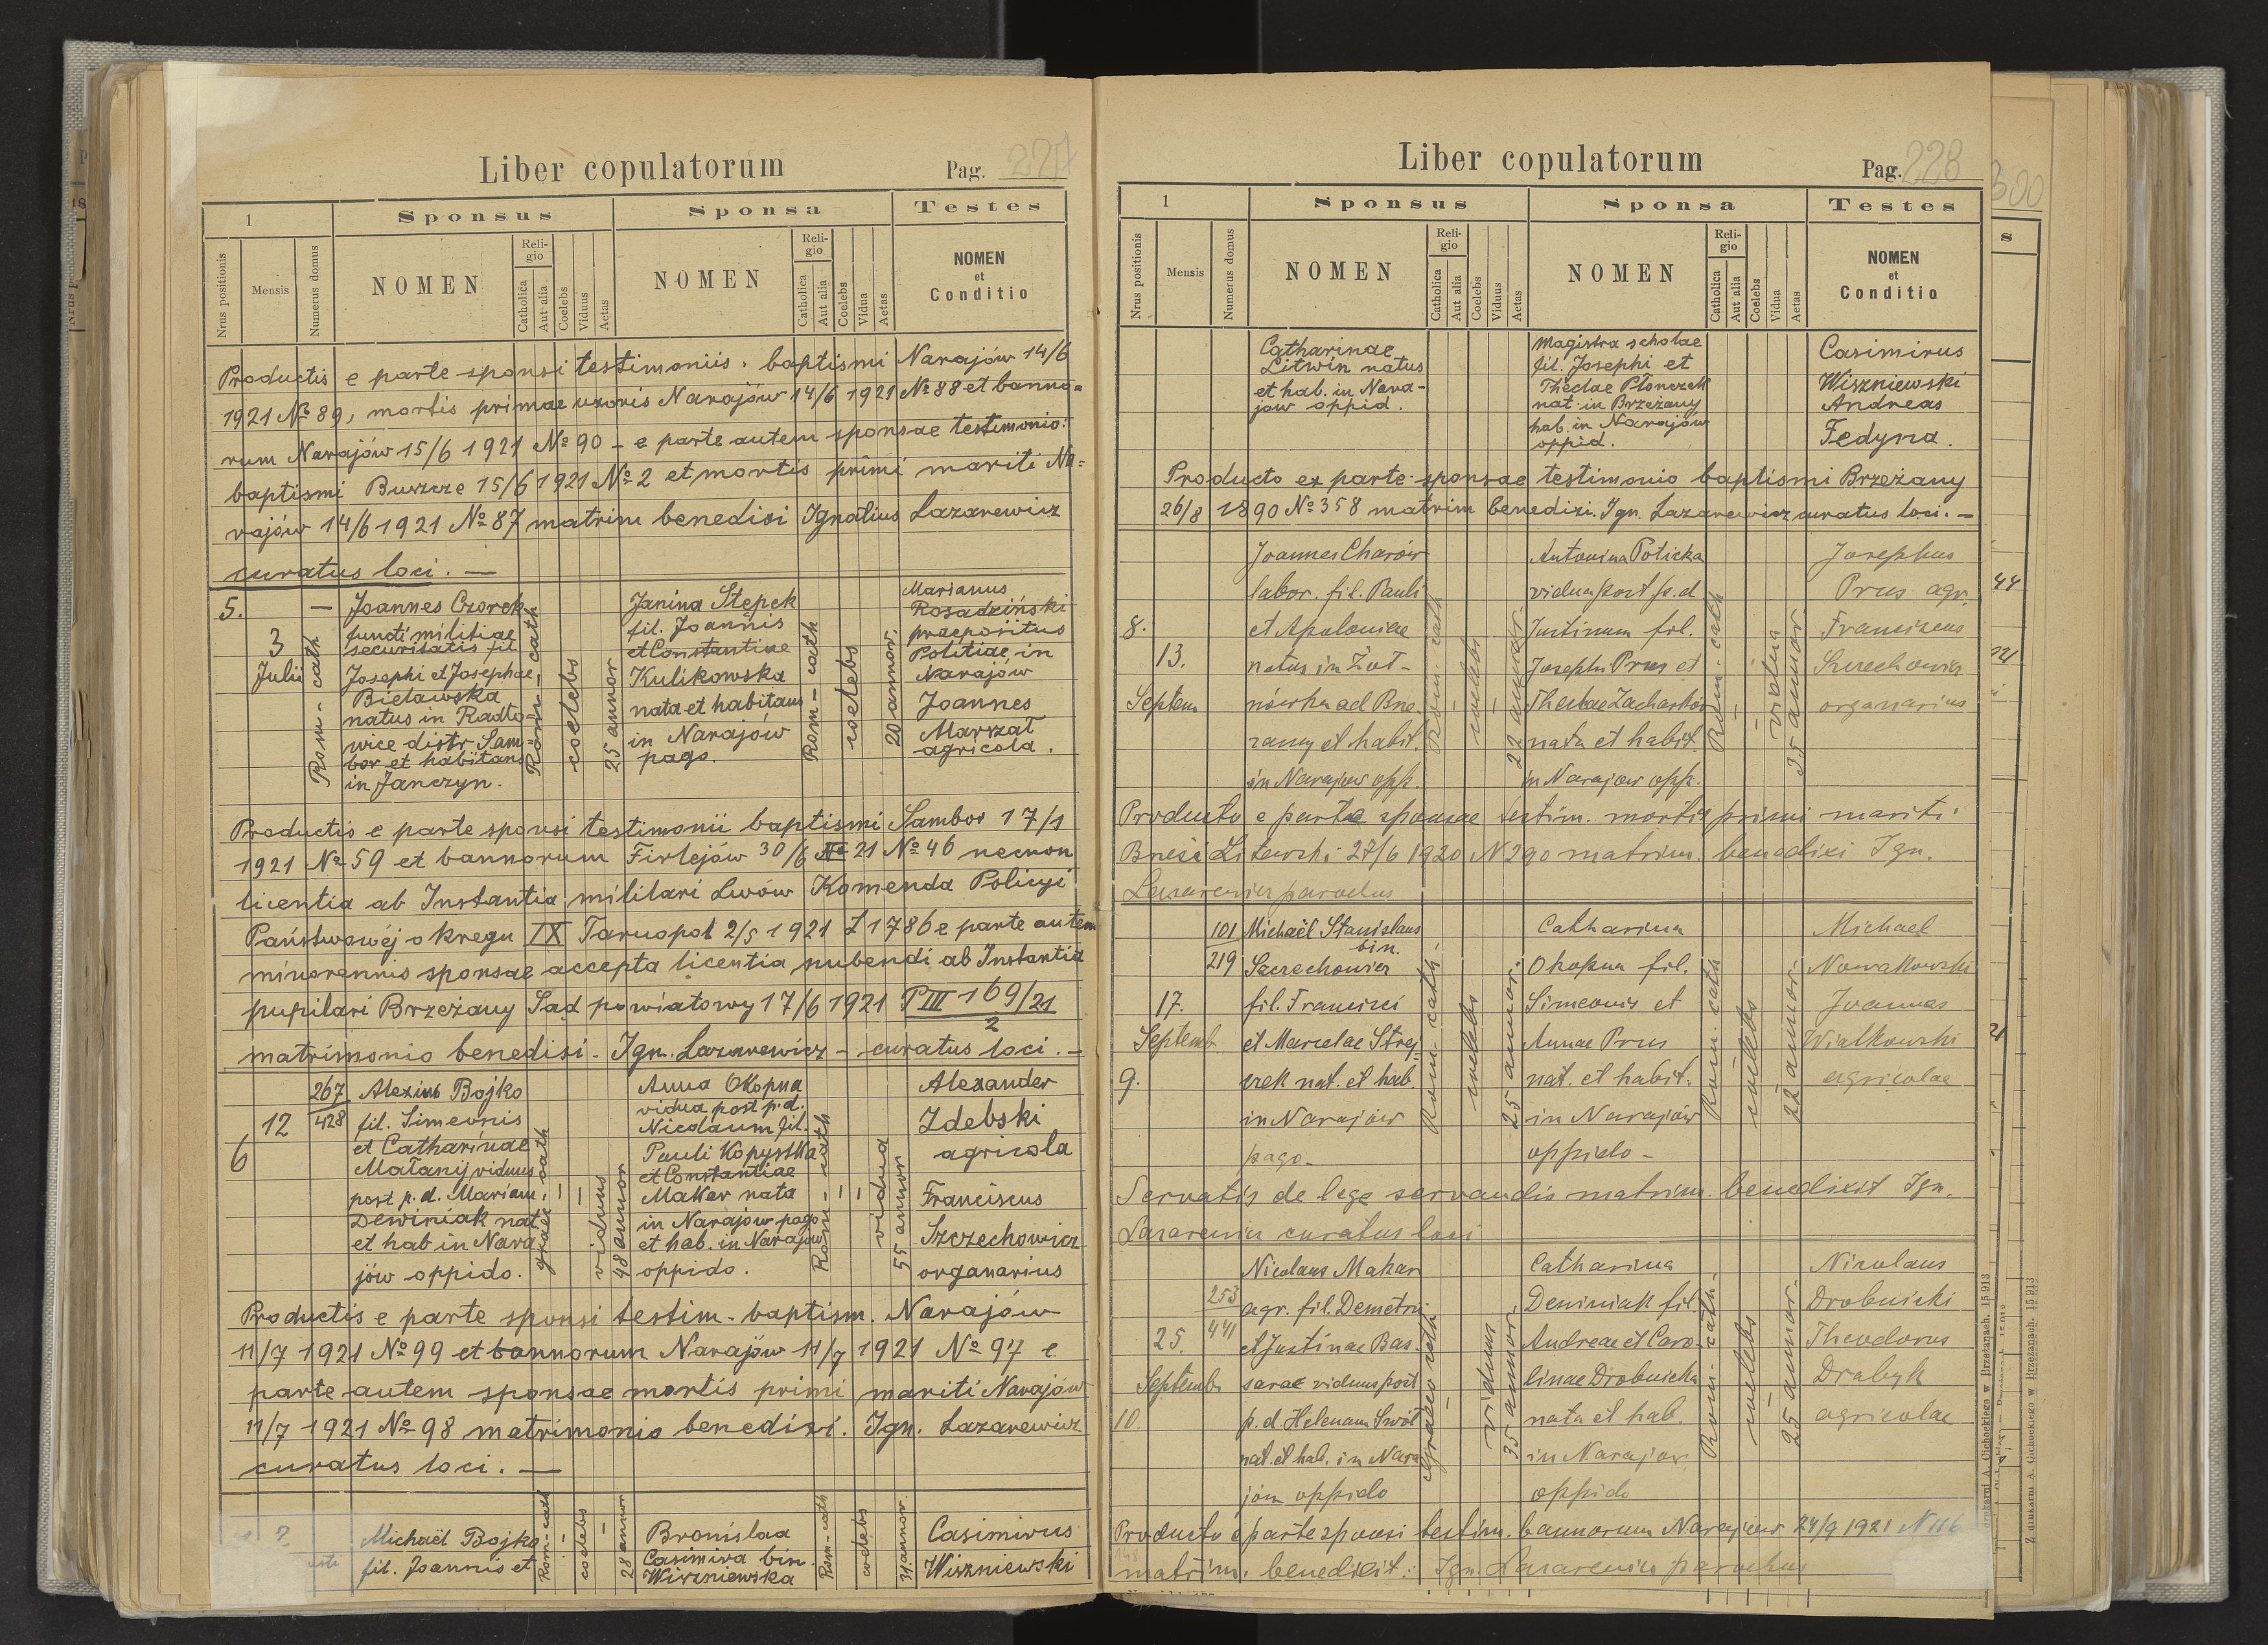 Liber copulatorum
Pag. 227
1
Sponsus
Sponsa
Testes
Nrus positionis
Mensis
Numerus domus
NOMEN
Religio
Catholica
Aut alia
Coelebs
Viduus
Aetas
NOMEN
Religio
Catholica
Aut alia
Coelebs
Vidua
Aetas
NOMEN
et
Conditio
Productis e parte sponsi testimoniis: baptismi Narajów 14/6
1921 № 89, mortis primae uxoris Narajów 14/6 1921 № 88 et banno=
rum Narajów 15/6 1921 № 90 – e parte autem sponsae testimonio:
baptismi Buszcze 15/6 1921 № 2 et mortis primi mariti Na=
rajów 14/6 1921 № 87 matrim benedixi Ignatius Lazarewicz
curatus loci. —
5.
3
Julii
—
Rom-cath
Joannes Czorek
functi militiae
securitatis fil
Josephi et Josephae
Bielawska
natus in Radło=
wice distr. Sam=
bor et habitans
in Janczyn.
Rom-cath
coelebs
25 annor
Janina Stępek
fil. Joannis
et Constantiae
Kulikowska
nata et habitans
in Narajów
pago.
Rom-cath
coelebs
20 annor.
Marianus
Rosadziński
praepositus
Politiae in
Narajów
Joannes
Marszał
agricola.
Productis e parte sponsi testimonii baptismi Sambor 17/1
1921 № 59 et bannorum Firlejów 30/6 21 № 46 necnon
licentia ab Instantia militari Lwów Komenda Policyi
Państwowéj okregu IX Tarnopol 2/5 1921 Ł 1786 e parte autem
minorennis sponsae accepta licentia nubendi ab Instantia
pupilari Brzeżany Sad powiatowy 17/6 1921 P III 169/21
2
matrimonio benedixi. Ign. Lazarewicz – curatus loci. –
6
12
267
428
Alexius Bojko
fil. Simeonis
et Catharinae
Małanij viduus
post p. d. Mariam
Dewiniak nat.
et hab in Nara
jów oppido.
graec cath
viduus
48 annor
Anna Okopna
vidua post p. d.
Nicolaum fil.
Pauli Kopystka
et Constantiae
Makar nata
in Narajów pago
et hab. in Narajów
oppido.
Rom cath
vidua
55 annor
Alexander
Zdebski
agricola
Franciscus
Szczechowicz
organarius
Productis e parte sponsi testim. baptism. Narajów
11/7 1921 № 99 et bannorum Narajów 11/7 1921 № 97 e
parte autem sponsae mortis primi mariti Narajów
11/7 1921 № 98 matrimonio benedixi. Ign. Lazarewicz
curatus loci. —
Michaël Bojko
fil. Joannis et
Rom-cath
coelebs
28 annor
Bronislaa
Casimira bin.
Wiszniewska
Rom-cath
coelebs
31 annor.
Casimirus
Wiszniewski
Liber copulatorum
Pag. 228
1
Sponsus
Sponsa
Testes
Nrus positionis
Mensis
Numerus domus
NOMEN
Religio
Catholica
Aut alia
Coelebs
Viduus
Aetas
NOMEN
Religio
Catholica
Aut alia
Coelebs
Vidua
Aetas
NOMEN
et
Conditio
Catharinae
Litwin natus
et hab. in Nara-
jow oppid.
Magistra scholae
fil. Josephi et
Theclae Płonczek
nat. in Brzeżany
hab. in Narajów
oppid.
Casimirus
Wiszniewski
Andreas
Fedyna.
Producto ex parte sponsae testimonio baptismi Brzeżany
26/8 1890 № 358 matrim benedixi. Ign. Lazarewicz curatus loci. –
8.
13.
Septem
Joannes Charów
labor. fil. Pauli
et Apoloniae
natus in Żoł-
nówka ad Brze
żany et habit.
in Narajow opp.
Rom-cath
coelebs
22 annor.
Antonina Poticka
vidua post p. d
Justinum fil.
Josephi Prus et
Theclae Zacharków
nata et habit
in Narajow opp.
Rom-cath
vidua
35 annor
Josephus
Prus agr.
Franciscus
Szczechowicz
organarius
Producto e parte sponsae testim. mortis primi mariti:
Brześć Litewski 27/6 1920 N 290 matrim. benedixi Ign.
Lazarewicz parochus
9.
17.
Septemb
101
219
Michaël Stanislaus
bin.
Szczechowicz
fil. Francisci
et Marcelae Strej
czek nat. et hab.
in Narajow
pago.
Rom-cath
coelebs
25 annor.
Catharina
Okopna fil.
Simeonis et
Annae Prus
nat. et habit.
in Narajów
oppido –
Rom-cath
coelebs
22 annor.
Michael
Nowakowski
Joannes
Wiałkowski
agricolae
Servatis de lege servandis matrim. benedixit Ign.
Lazarewicz curatus loci
10.
25.
Septemb
253
441
Nicolaus Makar
agr. fil. Demetrii
et Justinae Bas-
sarae viduus post
p. d. Helenam Swół
nat. et hab. in Nara
jów oppido
graeco cath
viduus
35 annor.
Catharina
Dewiniak fil
Andreae et Caro-
linae Drobnicka
nata et hab.
in Narajow
oppido
Rom-cath
coelebs
25 annor.
Nicolaus
Drobnicki
Theodorus
Drabyk
agricolae
Producto e parte sponsi testim. bannorum Narajow 24/9 1921 N 116
matrim. benedixit: Ign. Lazarewicz parochus
Z drukarni A. Cichockiego w Brzeżanach. 15 913
300
s
44
21